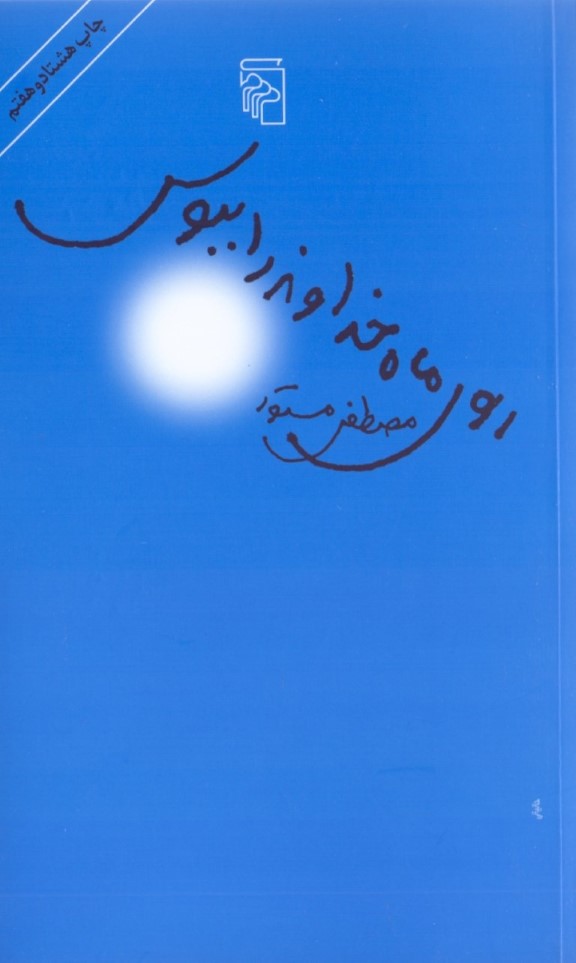 چاپ هشتاد و هفتم
روی ماه خداوند را ببوس
مصطفی مستور